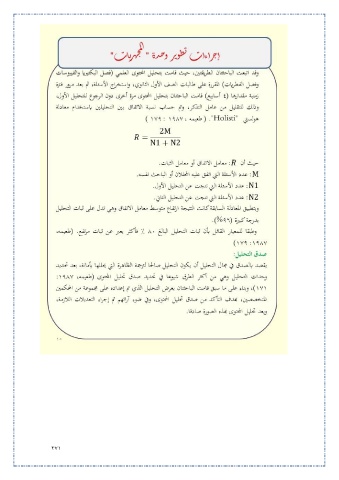 إجراءات تطوير وحدة "المجهريات"
وقد اتبعت الباحثتان الطريقتين، حيث قامت بتحليل المحتوى العلمي (فصل البكتيريا والفيروسات
وفصل الفطريات) المقررة على طالبات الصف الأول الثانوي، واستخراج الأسئلة، ثم بعد مرور فترة
زمنية مقدارها (٤ أسابيع) قامت الباحثتان بتحليل المحتوى مرة أخرى دون الرجوع للتحليل الأول،
وذلك للتقليل من عامل التذكر، وتم حساب نسبة الاتفاق بين التحليلين باستخدام معادلة
هولستي "Holisti". ( طعيمه ، ١٩٨٧ : ١٧٩ )
R = 2M
N1 + N2
حيث أن R: معامل الاتفاق أو معامل الثبات.
M: عدد الأسئلة التي اتفق عليه المحللان أو الباحث نفسه.
N1: عدد الأسئلة التي نتجت عن التحليل الأول.
N2: عدد الأسئلة التي نتجت عن التحليل الثاني.
وبتطبيق المعادلة السابقة كانت النتيجة ارتفاع متوسط معامل الاتفاق وهي تدل على ثبات التحليل
بدرجة كبيرة (٩٦%).
وطبقا للمعيار القائل بأن ثبات التحليل البالغ ٨٠ ٪ فأكثر يعبر عن ثبات مرتفع. (طعيمه،
١٩٨٧ : ١٧٩)
صدق التحليل:
يقصد بالصدق في مجال التحليل أن يكون التحليل صالحا لترجمة الظاهرة التي يحللها بأمانة، بعد تحديد
وحدات التحليل وهي من أكثر الطرق شيوعا في تحديد صدق تحليل المحتوى (طعيمه، ١٩٨٧:
١٧١)، وبناء على ما سبق قامت الباحثتان بعرض التحليل الذي تم إعداده على مجموعة من المحكمين
المتخصصين، بهدف التأكد من صدق تحليل المحتوى، وفي ضوء آرائهم تم إجراء التعديلات اللازمة،
ويعد تحليل المحتوى بهذه الصورة صادقا.
٢٧١